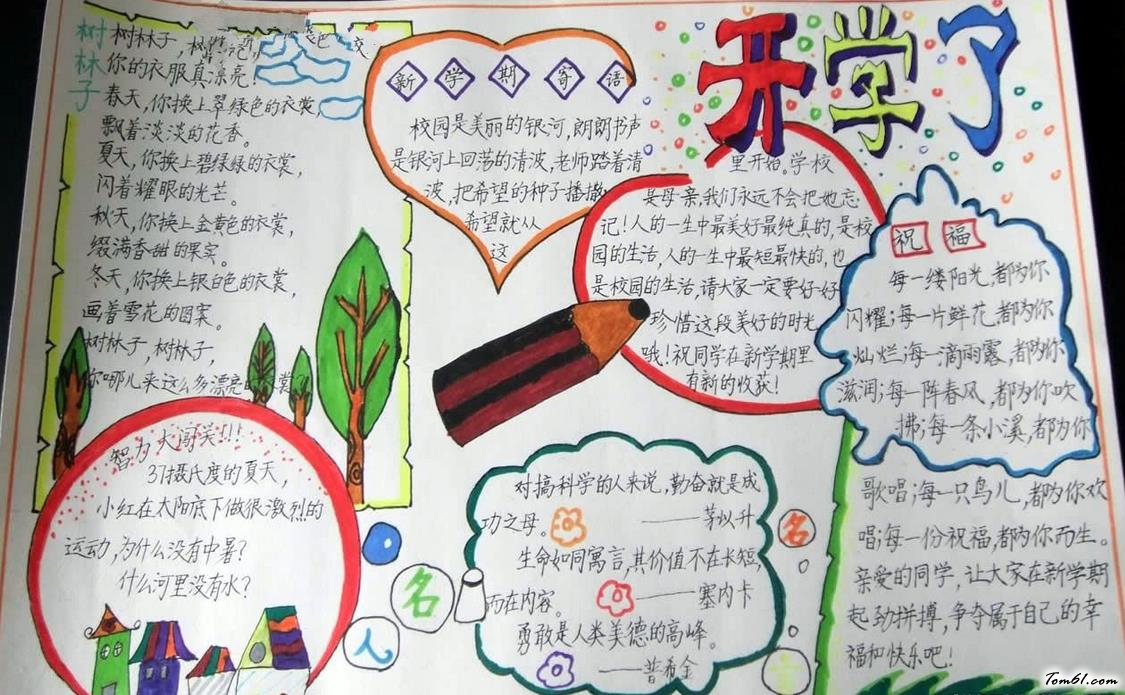 开学了
树林子
树林子，树
你的衣服真漂亮！
春天，你换上翠绿色的衣裳，
飘着淡淡的花香。
夏天，你换上碧绿绿的衣裳，
闪着耀眼的光芒。
秋天，你换上金黄色的衣裳，
缀满香甜的果实。
冬天，你换上银白色的衣裳，
画着雪花的图案。
树林子，树林子，
你哪儿来这么多漂亮的衣裳？
新学期寄语
校园是美丽的银河，朗朗书声
是银河上回荡的清波，老师踏着清
波，把希望的种子播撒
希望就从
这
里开始。学校
是母亲，我们永远不会把她忘
记！人的一生中最美好最纯真的，是校
园的生活，人的一生中最短最快的，也
是校园的生活，请大家一定要好好
珍惜这段美好的时光
哦！祝同学在新学期里
有新的收获！
祝福
每一缕阳光，都为你
闪耀；每一片鲜花，都为你
灿烂；每一滴雨露，都为你
滋润；每一阵春风，都为你吹
拂；每一条小溪，都为你
歌唱；每一只鸟儿，都为你欢
唱；每一份祝福，都为你而生。
亲爱的同学，让大家在新学期
起劲拼搏，争夺属于自己的幸
福和快乐吧！
智力大闯关！！！
37摄氏度的夏天，
小红在太阳底下做很激烈的
运动，为什么没有中暑？
什么河里没有水？
名
人
名
对搞科学的人来说，勤奋就是成
功之母。
——茅以升
生命如同寓言，其价值不在长短，
而在内容。
——塞内卡
勇敢是人类美德的高峰。
——普希金
Tom61.com